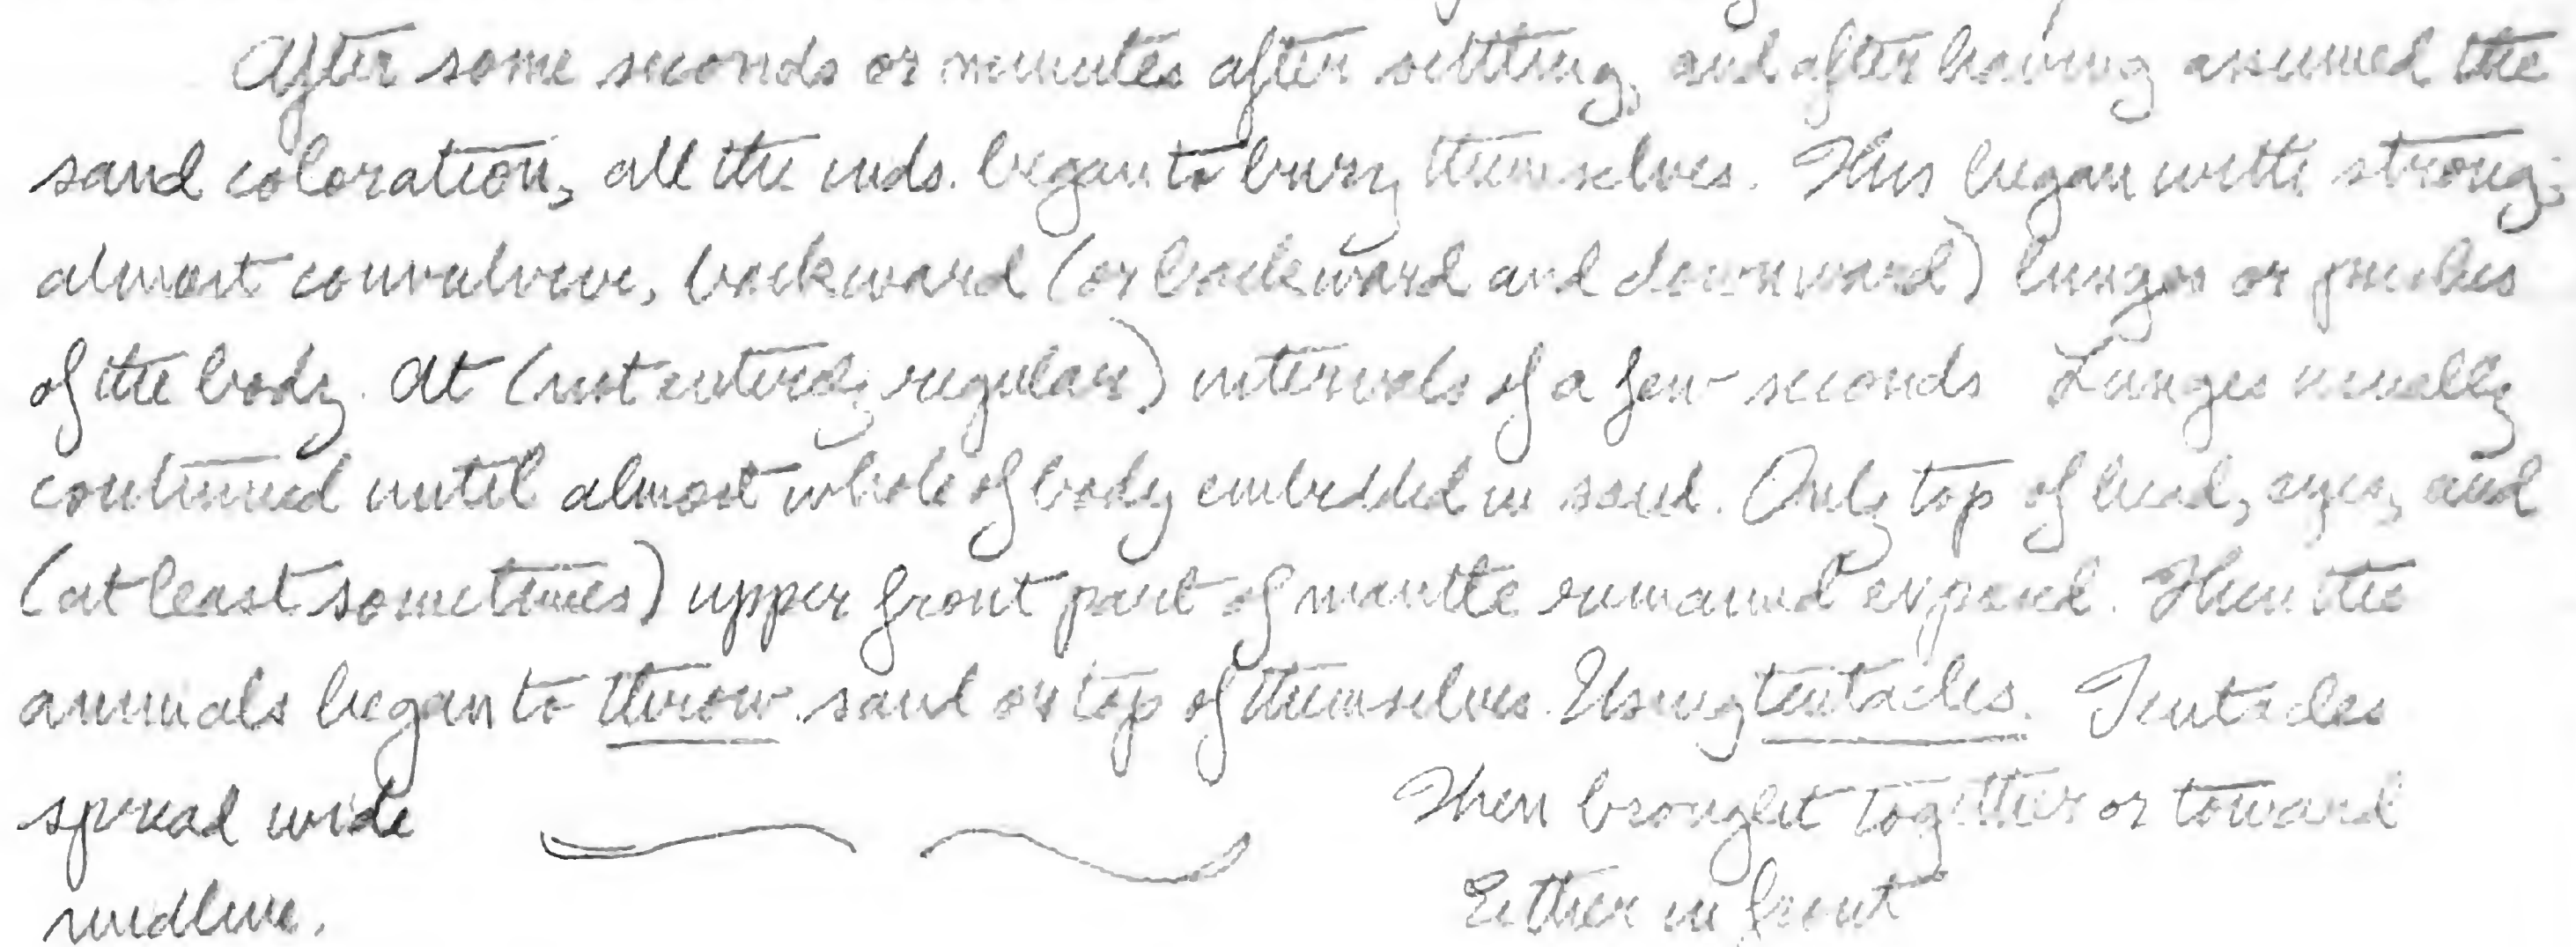 After some seconds or minutes after settling, and after having assumed the
sand coloration, all the inds. began to bury themselves. This began with strong,
almost convulsive, backward (or backward and downward) lunges or pushes
of the body. At (not entirely regular) intervals of a few seconds Lunges usually
continued until almost whole of body embedded in sand. Only top of head, eyes, and
(at least sometimes) upper front part of mantle remained exposed. Then the
animals began to throw sand on top of themselves. Using tentacles. Tentacles
spread wide Then brought together or toward
midline. Either in front